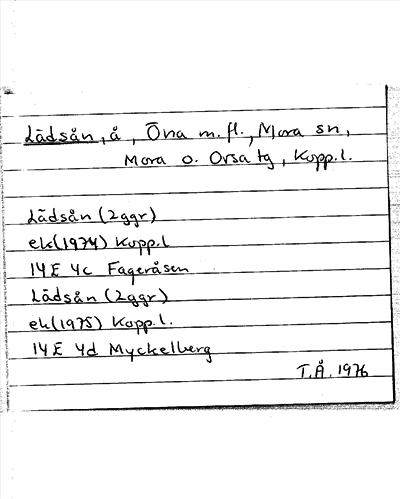 Lädsån, å, Öna m.fl., Mora sn,
Mora o. Orsa tg, Kopp.l.
Lädsån (2ggr)
ek(1974) Kopp.l
14E 4c Fageråsen
Lädsån (2ggr)
ek(1975) Kopp.l.
14E 4d Myckelberg
T.Å. 1976